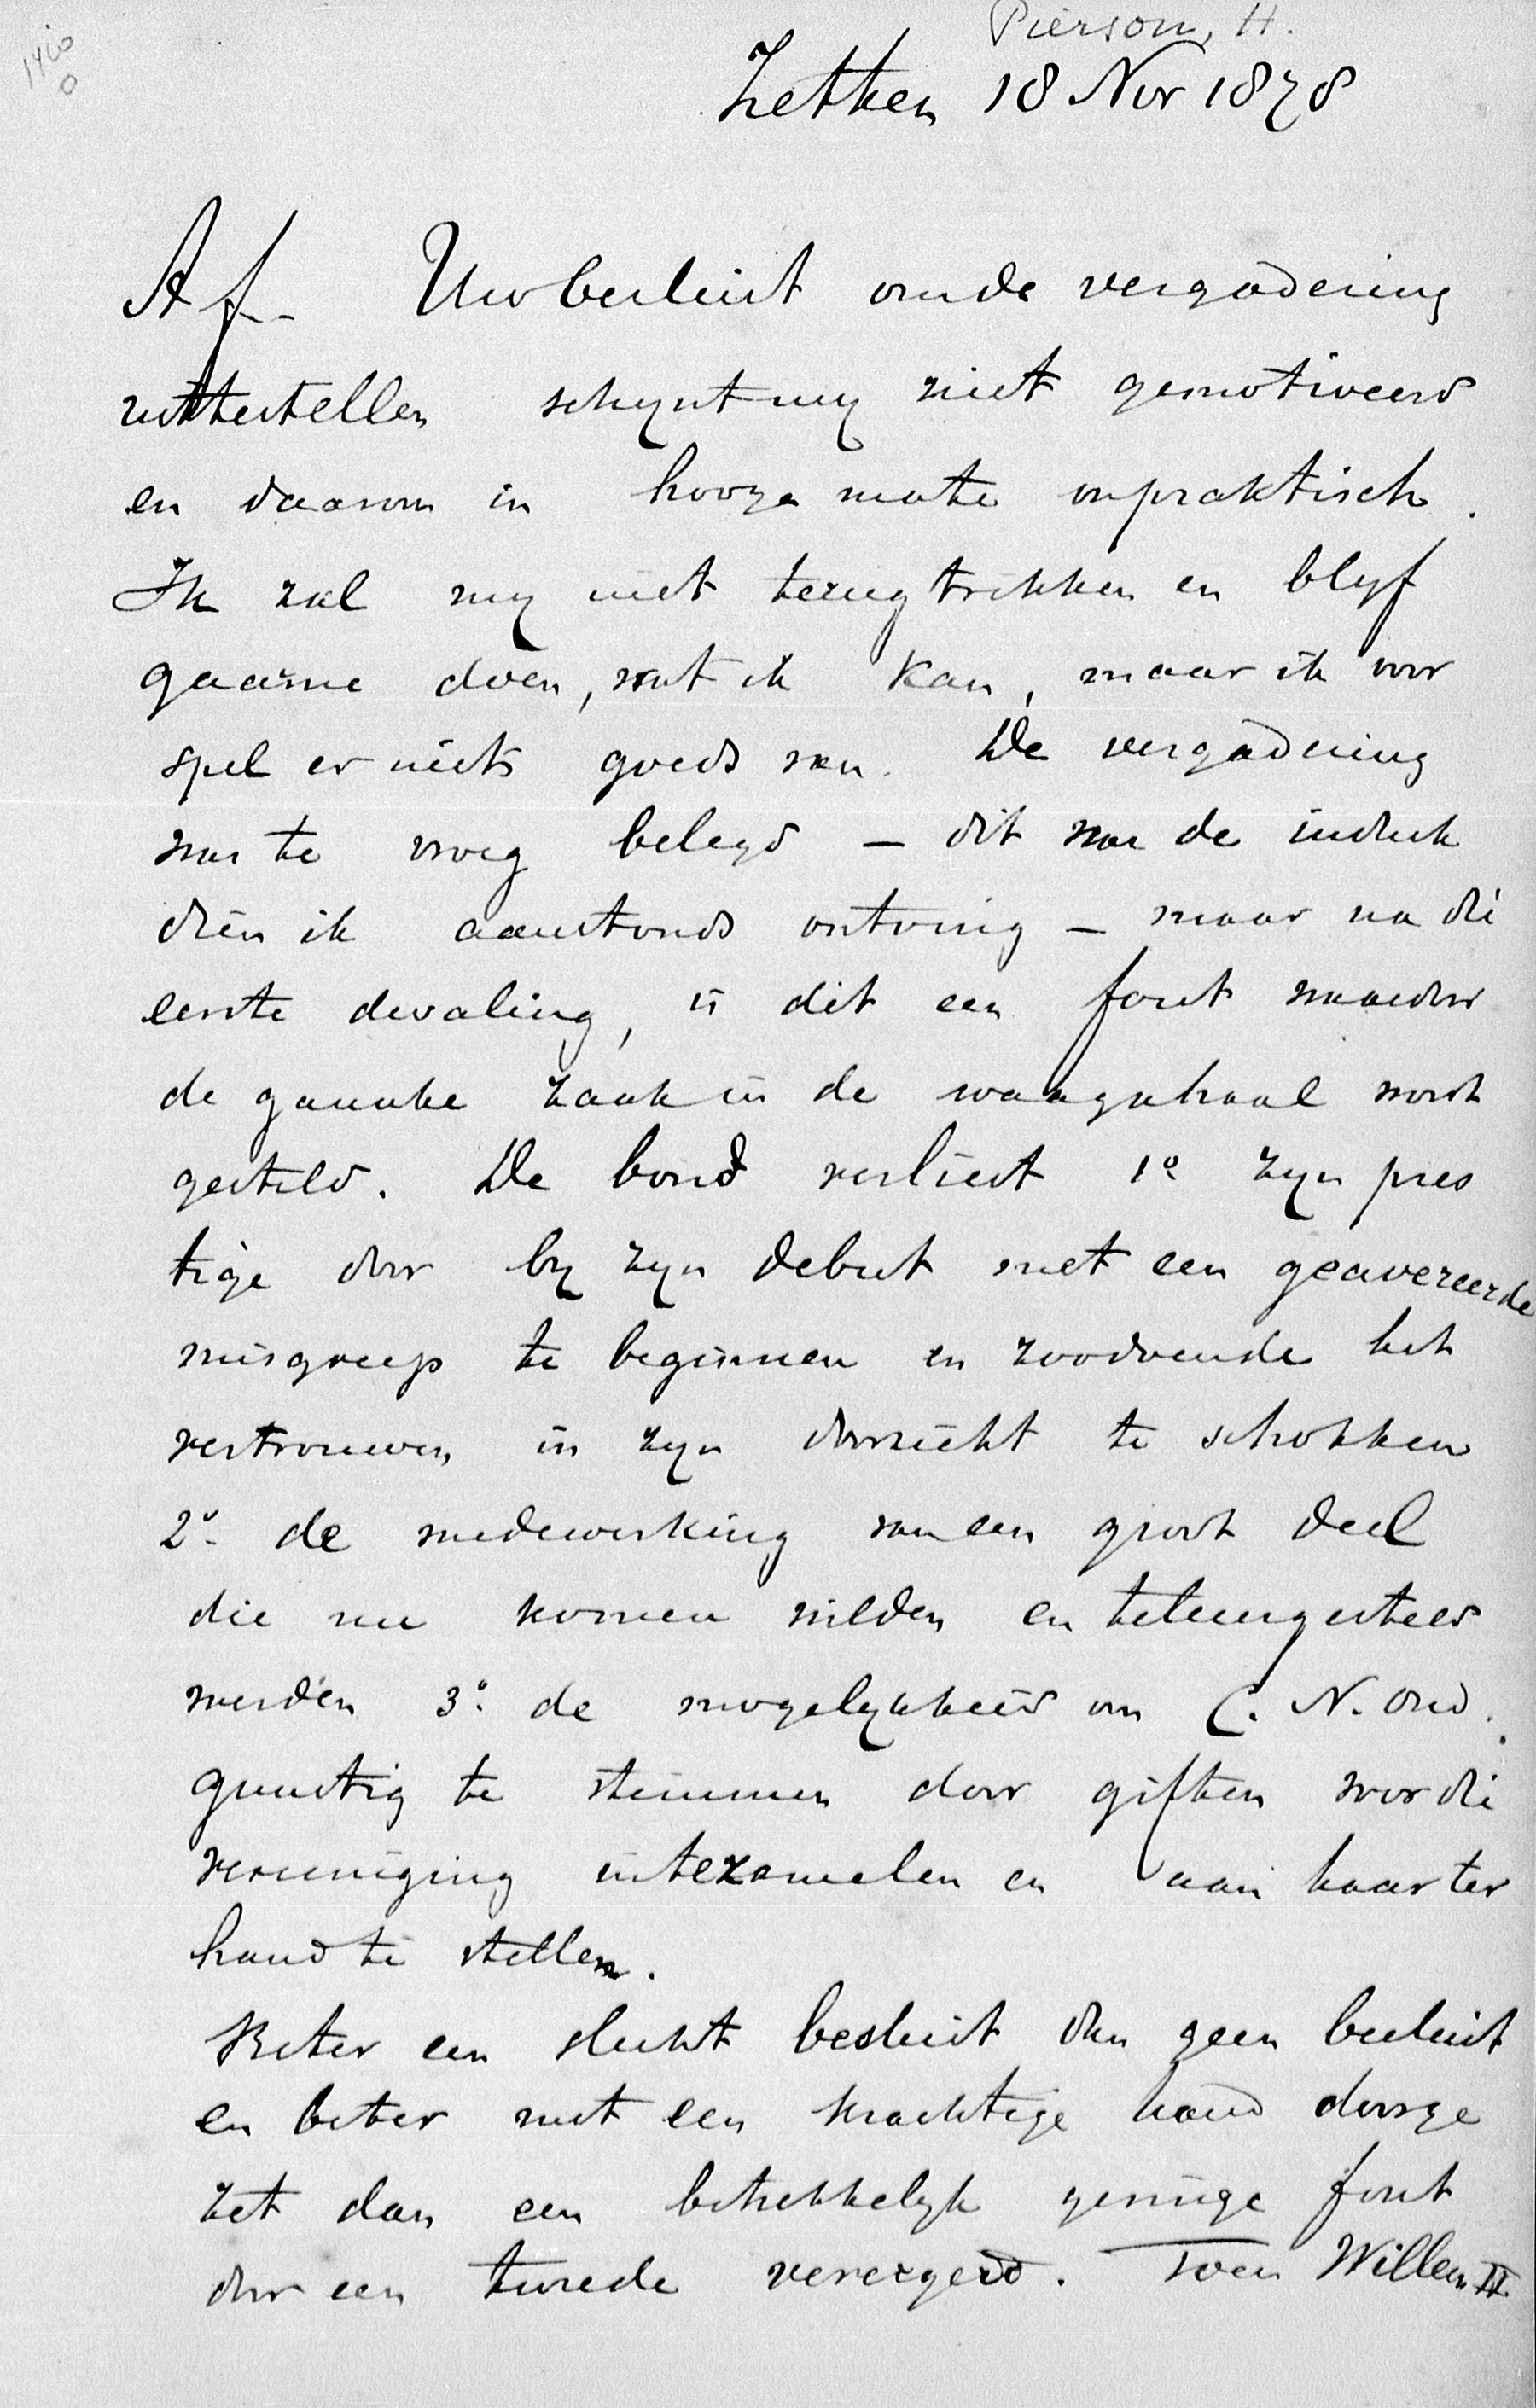 Pierson, H.
Zetten 18 Nov 1878
Af. Uw besluit om de vergadering
uittestellen schynt my niet gemotiveerd
en daarom in hooge mate onpraktisch.
Ik zal my niet terugtrekken en blyf
gaarne doen, wat ik kan, maar ik voor
spel er niets goeds van. De vergadering
was te vroeg belegd – dit was de indruk
dien ik aanstonds ontving – maar na die
eerste dwaling, is dit een fout waardoor
de gansche zaak in de waagschaal wordt
gesteld. De bond verliest 1º zyn pres
tige door by zyn debut met een geavereerde
misgreep te beginnen en zoodoende het
vertrouwen in zyn doorzicht te schokken
2º de medewerking van een groot deel
die nu komen wilden en teleurgesteld
werden 3º de mogelykheid om C. N. Ond.
gunstig te stemmen door giften voor die
vereeniging intezamelen en aan haar ter
hand te stellen.
Beter een slecht besluit dan geen besluit
en beter met een krachtige hand doorge
zet dan een betrekkelyk geringe fout
door een tweede verergerd. Toen Willem II